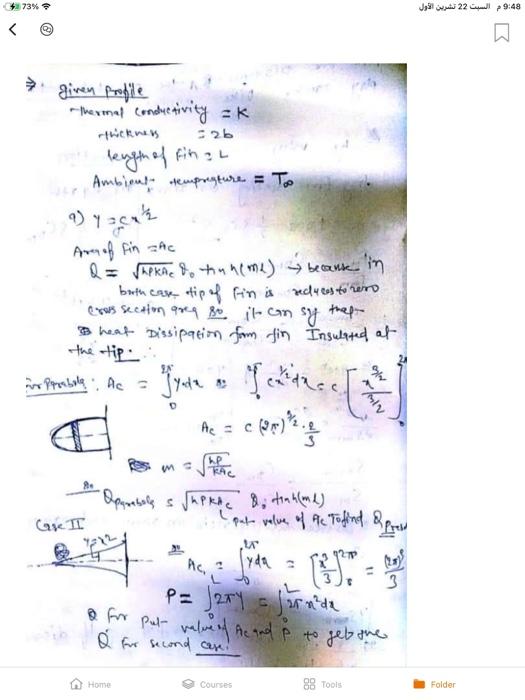 73%
9:48 م السبت 22 تشرين الأول
⇒ given profile
thermal conductivity = K
thickness = 2b
length of fin = L
Ambient temprature = T∞
a) y = cx^1/2
Area of fin = Ac
Q = √hPKAc θ₀ tanh(mL) → because in
both case tip of fin is reduces to zero
cross section area so it can sy that
heat Dissipation from fin Insulated at
the tip.
for Parabola: Ac = ∫₀^2π y dx = ∫ cx^1/2 dx = c [x^3/2 / 3/2]₀
Ac = c (2π)^3/2 · 2/3
m = √hP/KAc
So Qparabola = √hPKAc θ₀ tanh(mL)
put value of Ac To find Q
Case II
y = x²
so Ac = ∫₀^2π y dx = [x³/3]₀^2π = (2π)³/3
P = ∫₀^L 2πy = ∫₀^L 2π x² dx
for put value of Ac and P to get the
Q for second case.
Home
Courses
Tools
Folder